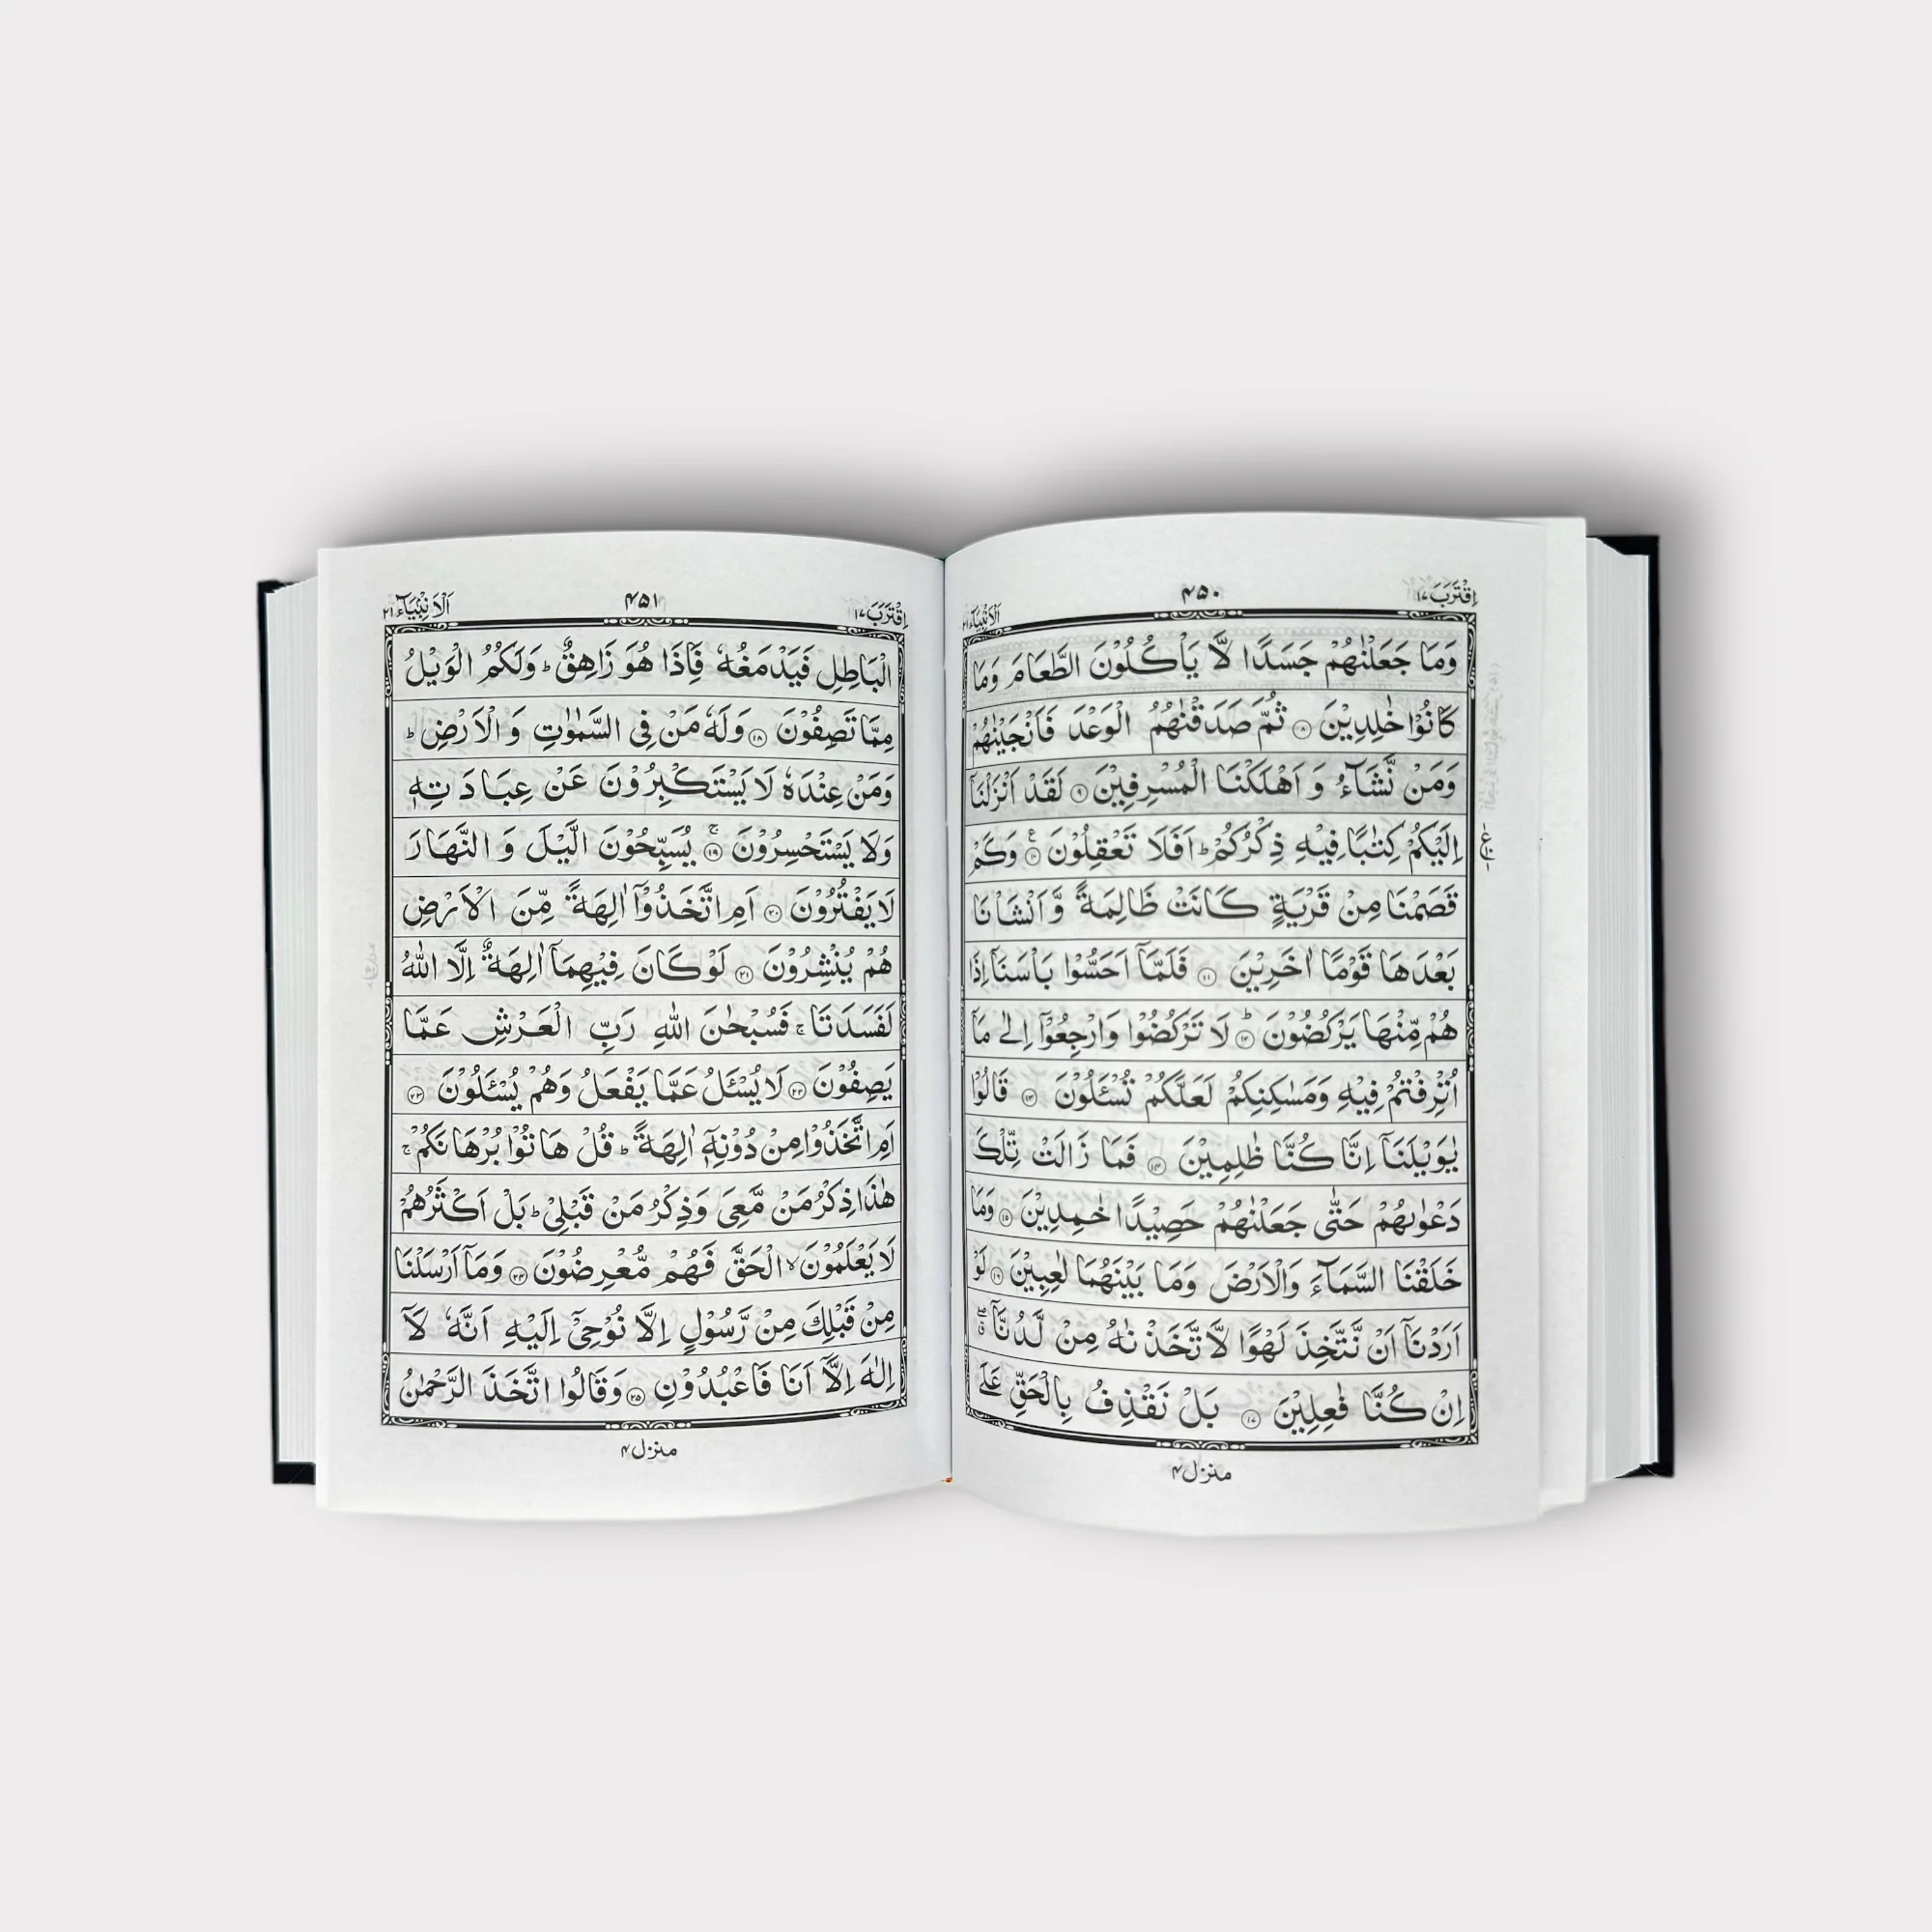 اِقْتَرَبَ ١٧
۴۵۰
اَلْاَنْۢبِیَآء ٢١
وَمَا جَعَلْنٰهُمْ جَسَدًا لَّا یَاْكُلُوْنَ الطَّعَامَ وَمَا
كَانُوْا خٰلِدِیْنَ ۝۸ ثُمَّ صَدَقْنٰهُمُ الْوَعْدَ فَاَنْجَیْنٰهُمْ
وَمَنْ نَّشَآءُ وَ اَهْلَكْنَا الْمُسْرِفِیْنَ ۝۹ لَقَدْ اَنْزَلْنَاۤ
اِلَیْكُمْ كِتٰبًا فِیْهِ ذِكْرُكُمْ ؕ اَفَلَا تَعْقِلُوْنَ ۝۱۰ وَكَمْ
قَصَمْنَا مِنْ قَرْیَةٍ كَانَتْ ظَالِمَةً وَّ اَنْشَاْنَا
بَعْدَهَا قَوْمًا اٰخَرِیْنَ ۝۱۱ فَلَمَّاۤ اَحَسُّوْا بَاْسَنَاۤ اِذَا
هُمْ مِّنْهَا یَرْكُضُوْنَ ۝۱۲ؕ لَا تَرْكُضُوْا وَارْجِعُوْۤا اِلٰی مَاۤ
اُتْرِفْتُمْ فِیْهِ وَمَسٰكِنِكُمْ لَعَلَّكُمْ تُسْـَٔلُوْنَ ۝۱۳ قَالُوْا
یٰوَیْلَنَاۤ اِنَّا كُنَّا ظٰلِمِیْنَ ۝۱۴ فَمَا زَالَتْ تِّلْكَ
دَعْوٰىهُمْ حَتّٰی جَعَلْنٰهُمْ حَصِیْدًا خٰمِدِیْنَ ۝۱۵ وَمَا
خَلَقْنَا السَّمَآءَ وَالْاَرْضَ وَمَا بَیْنَهُمَا لٰعِبِیْنَ ۝۱۶ لَوْ
اَرَدْنَاۤ اَنْ نَّتَّخِذَ لَهْوًا لَّاتَّخَذْنٰهُ مِنْ لَّدُنَّاۤ
اِنْ كُنَّا فٰعِلِیْنَ ۝۱۷ بَلْ نَقْذِفُ بِالْحَقِّ عَلَی
منزل۴
اِقْتَرَبَ ١٧
۴۵۱
اَلْاَنْۢبِیَآء ٢١
الْبَاطِلِ فَیَدْمَغُهٗ فَاِذَا هُوَ زَاهِقٌ ؕ وَلَكُمُ الْوَیْلُ
مِمَّا تَصِفُوْنَ ۝۱۸ وَلَهٗ مَنْ فِی السَّمٰوٰتِ وَ الْاَرْضِ ؕ
وَمَنْ عِنْدَهٗ لَا یَسْتَكْبِرُوْنَ عَنْ عِبَادَتِهٖ
وَلَا یَسْتَحْسِرُوْنَ ۝۱۹ۚ یُسَبِّحُوْنَ الَّیْلَ وَ النَّهَارَ
لَا یَفْتُرُوْنَ ۝۲۰ اَمِ اتَّخَذُوْۤا اٰلِهَةً مِّنَ الْاَرْضِ
هُمْ یُنْشِرُوْنَ ۝۲۱ لَوْ كَانَ فِیْهِمَاۤ اٰلِهَةٌ اِلَّا اللّٰهُ
لَفَسَدَتَا ۚ فَسُبْحٰنَ اللّٰهِ رَبِّ الْعَرْشِ عَمَّا
یَصِفُوْنَ ۝۲۲ لَا یُسْـَٔلُ عَمَّا یَفْعَلُ وَهُمْ یُسْـَٔلُوْنَ ۝۲۳
اَمِ اتَّخَذُوْا مِنْ دُوْنِهٖۤ اٰلِهَةً ؕ قُلْ هَاتُوْا بُرْهَانَكُمْ ۚ
هٰذَا ذِكْرُ مَنْ مَّعِیَ وَذِكْرُ مَنْ قَبْلِیْ ؕ بَلْ اَكْثَرُهُمْ
لَا یَعْلَمُوْنَ ۙ الْحَقَّ فَهُمْ مُّعْرِضُوْنَ ۝۲۴ وَمَاۤ اَرْسَلْنَا
مِنْ قَبْلِكَ مِنْ رَّسُوْلٍ اِلَّا نُوْحِیْۤ اِلَیْهِ اَنَّهٗ لَاۤ
اِلٰهَ اِلَّاۤ اَنَا فَاعْبُدُوْنِ ۝۲۵ وَقَالُوا اتَّخَذَ الرَّحْمٰنُ
منزل۴